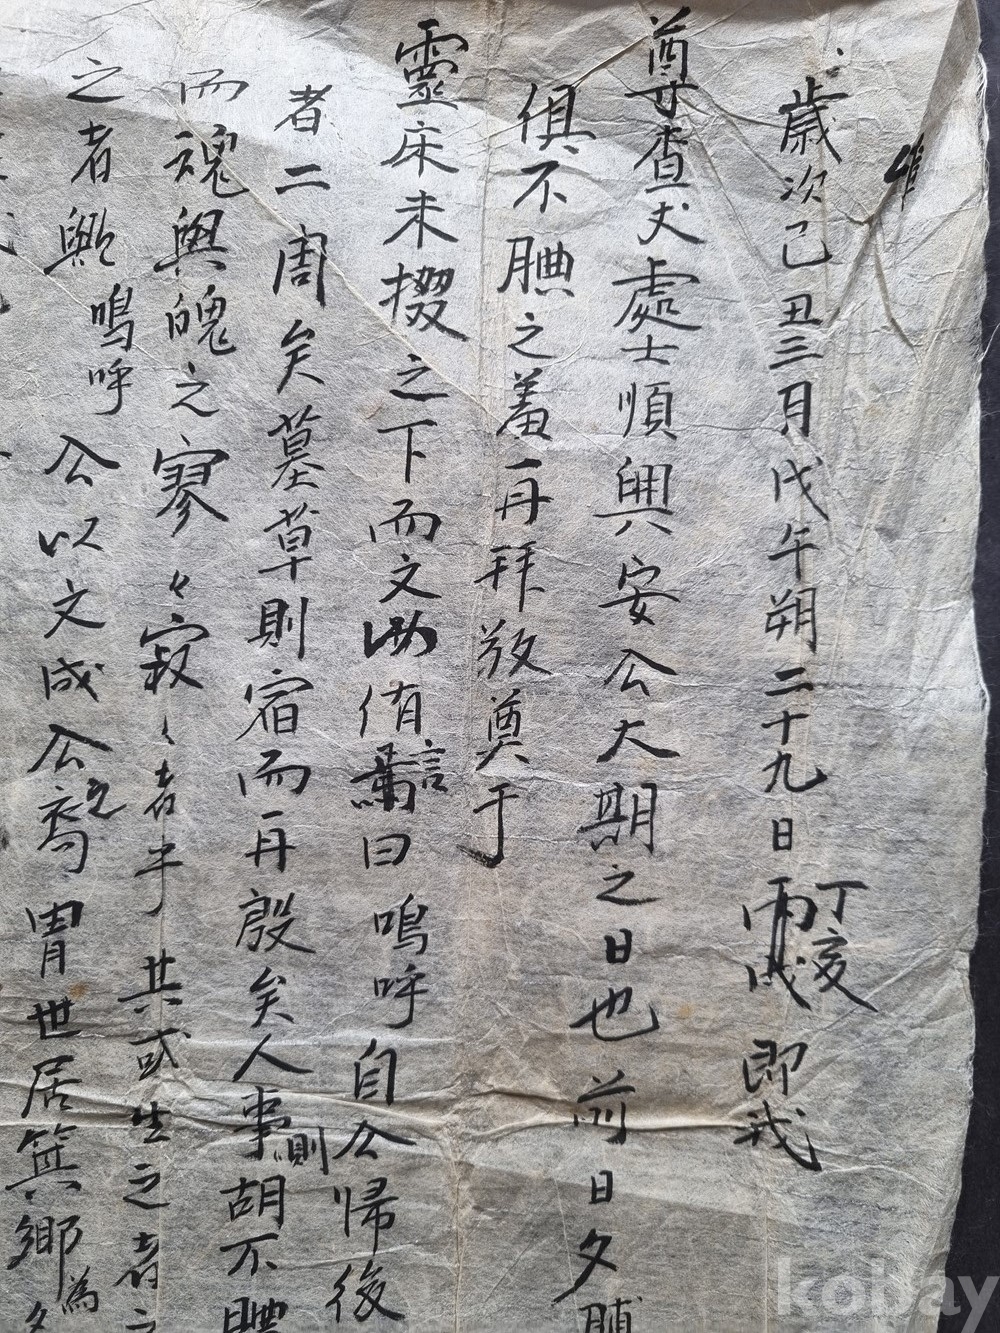 維
歲次己丑三月戊午朔二十九日丙戌丁亥即我
尊查丈處士順興安公大期之日也前日夕脯
俱不腆之羞再拜敬奠于
靈床未掇之下而文以侑言曰嗚呼自公歸後
者二周矣墓草則宿而再殷矣人事則胡不
而魂與魄之寥々寂々者乎其或生之者之
之者歟嗚呼公以文成公之裔胄世居箕鄉為
kobay